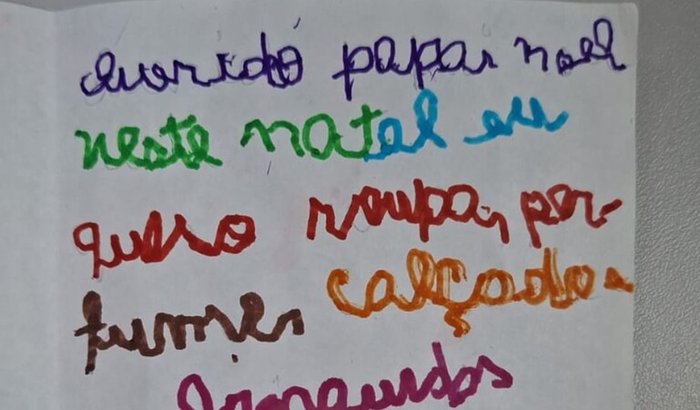 querido papai noel
neste natal eu
quero roupa, per-
fumes calçados
brinquedos